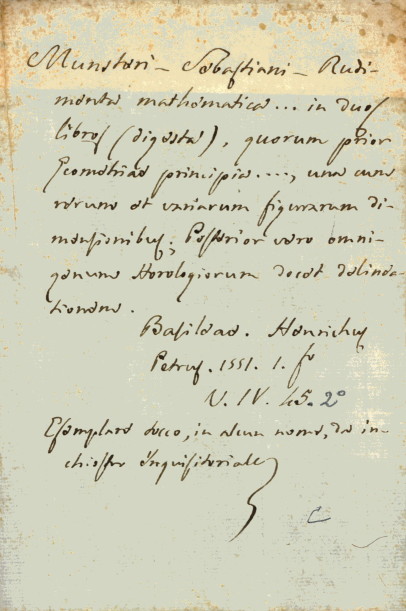 Munsteri - Sebastiani - Rudi-
menta mathematica... in duos
libros (digesta), quorum prior
Geometriae principia...., una cum
rerum et variarum figurarum di-
mensionibus; Posterior vero omni-
genum Horologiorum docet delinea-
tionem.
Basileae. Henrichus
Petrus. 1551. 1. fo
V. IV. 45. 2°
Esemplare tocco, in alcun nome, da in-
chiostro inquisitoriale
C